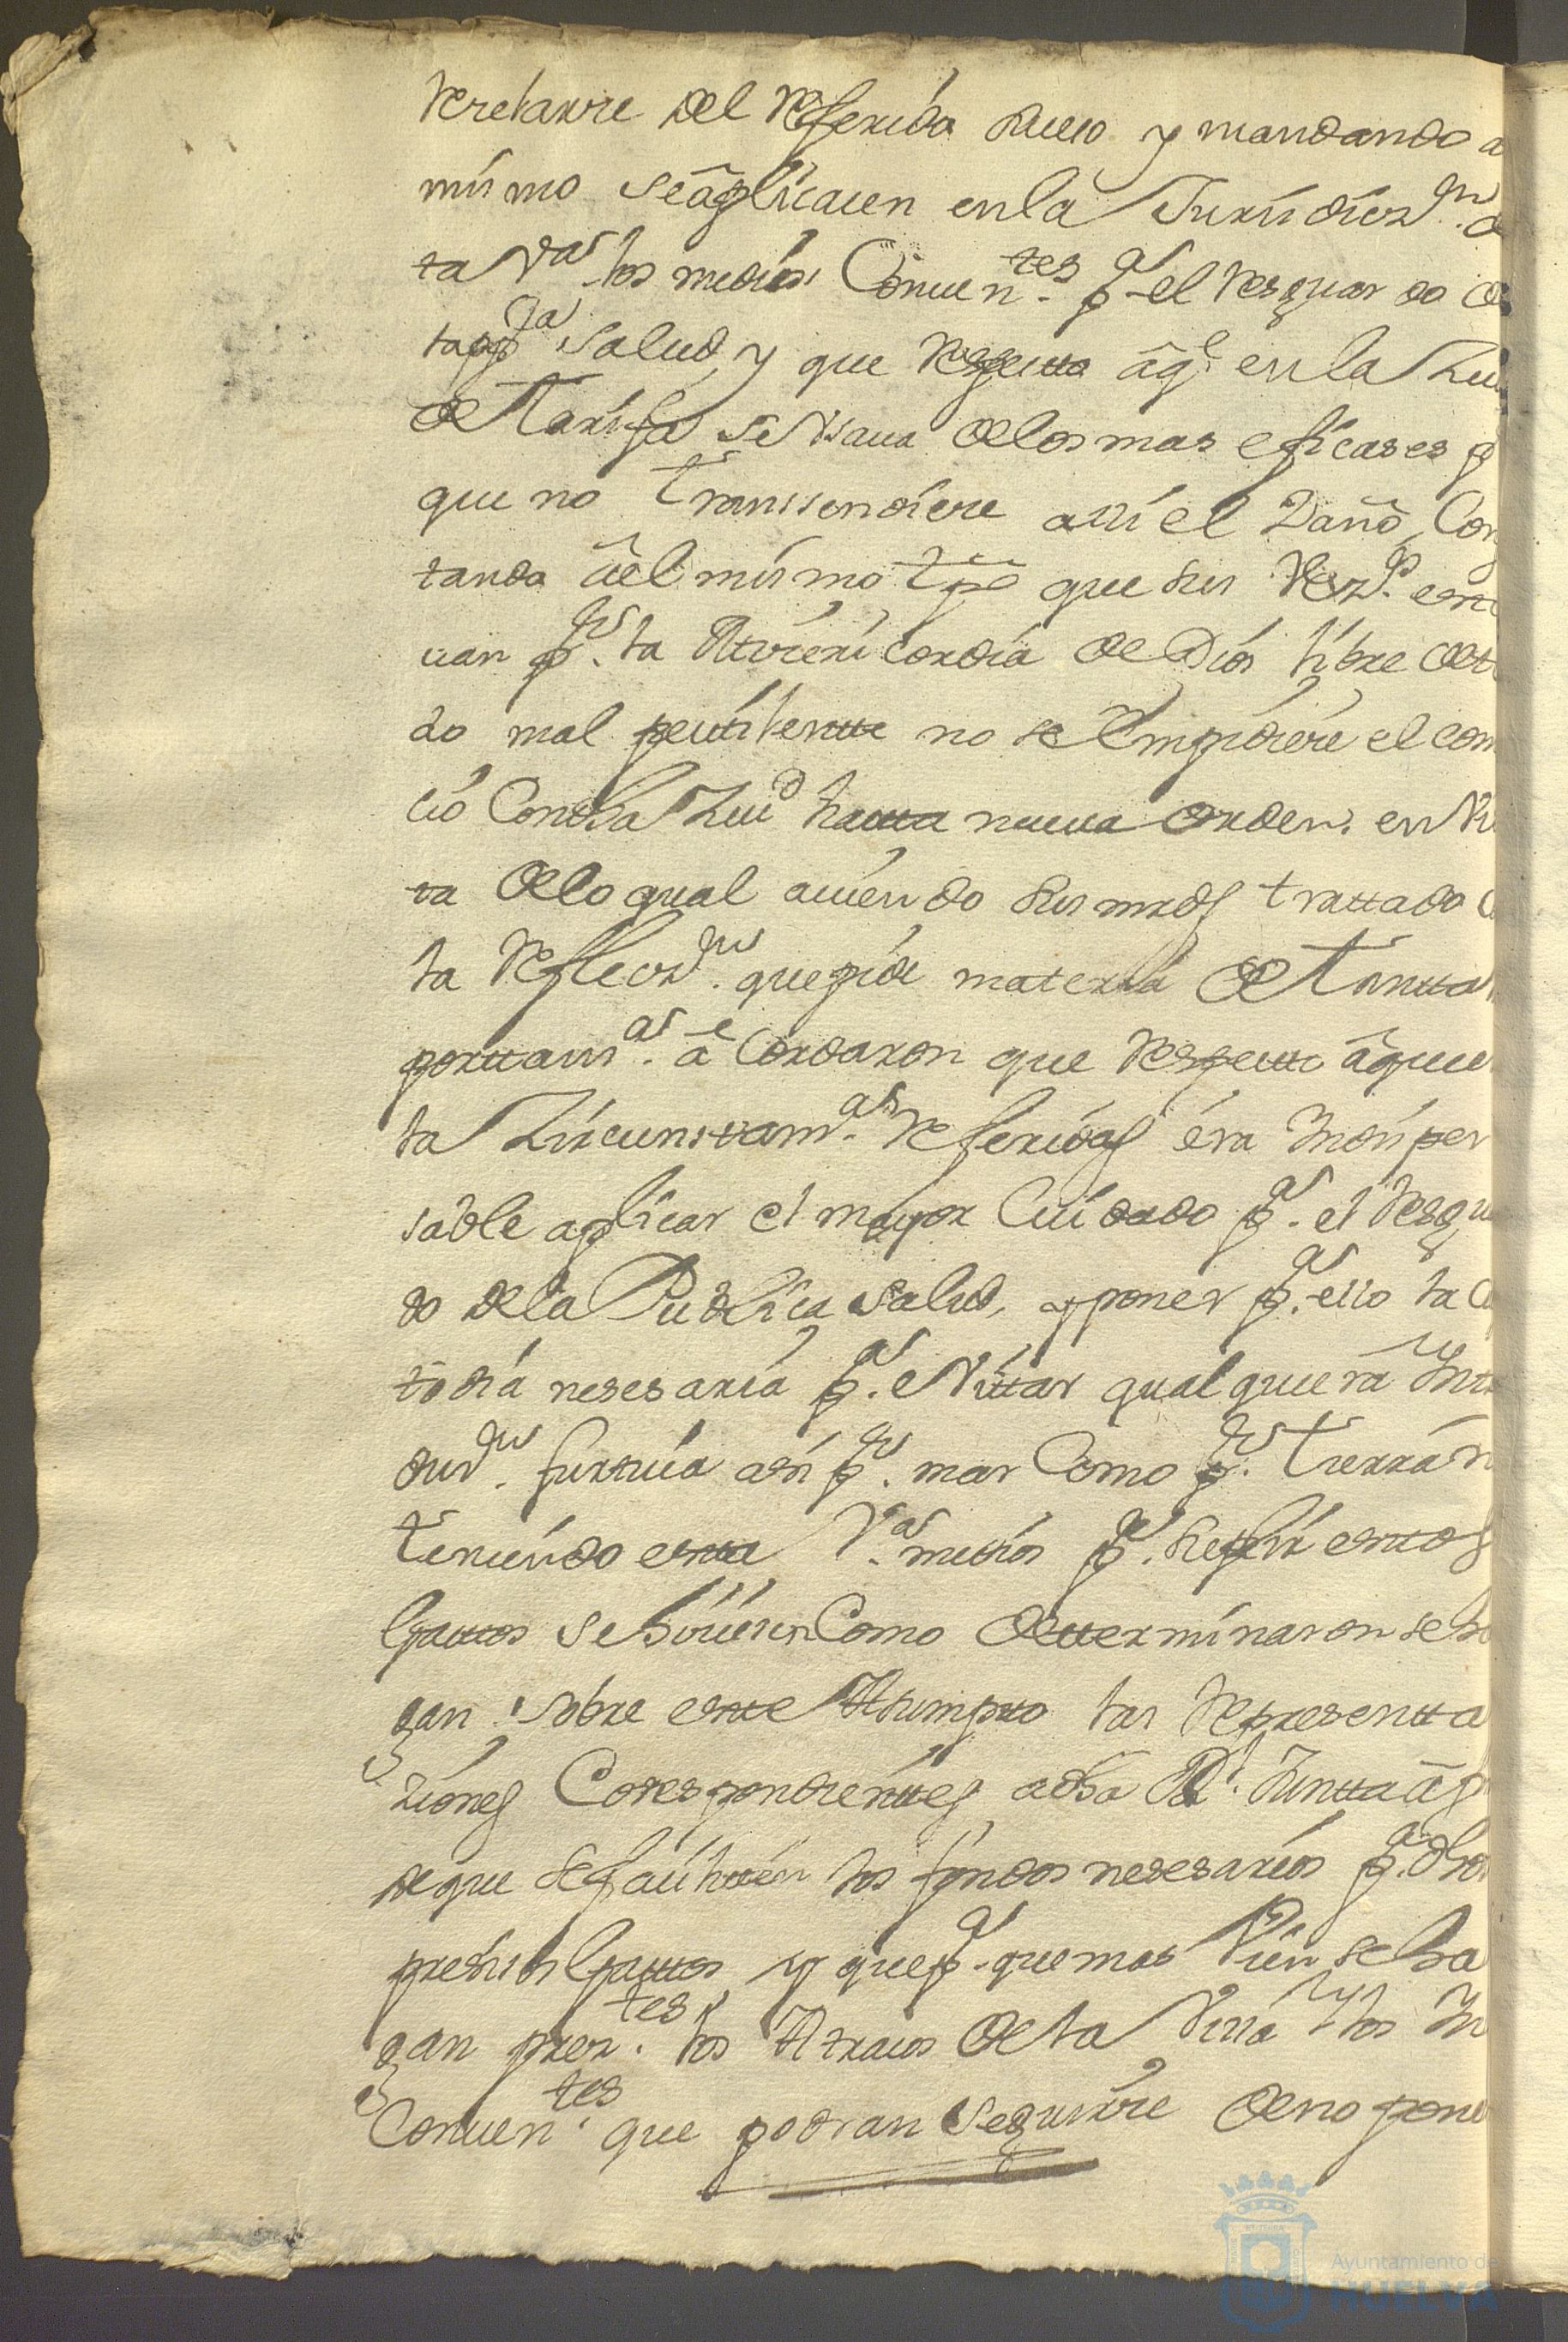 Resetarse del Referido suelo y mandando a
mismo se aplicasen en la Jurisdicz.on d
ta V.a los medios Conuen.tes p.a el resguardo de
ta pp.ca Salud, y que Respecto âq.e en la Ziu
de Tarifa se vsaua de los mas eficases p
que no transsendiese assi el Daño, Con
tando âel mismo tpõ que sus Vez.os esta
uan p.r la Misericordia de Dios libre de to
do mal pestilente no se Impidiese el com
cio Con dha Ziud hasta nueua orden. en Vi
ta de lo qual auiendo sus mrds trattado
la Reflecz.on que pide materia de tantta
porttanz.a acordaron que respecto âque
la Zircunstanz.as Referidas éra Indispen
sable aplicar el mayor Cuidado p.a el resgu
do dela Publica Salud, y poner p.a ello la
todia nesesaria p.a eVittar qualquiera Intr
duz.on furtiua asi p.r mar Como p.r tierra n
teniendo esta V.a medios p.a suplir estos
Gastos se hiziesen Como determinaron se ha
gan sobre este Asumpto las Representa
ziones Corespondientes a dha R.l Juntta â f
de que se faciliten los fondos nesesarios p.a dhos
presisos Gastos y que p.a que mas Vien se ha
gan pres.tes los Atrasos de la Villa y los In
Conuen.tes que podran seguirse de no pone
Ayuntamiento de
HUELVA